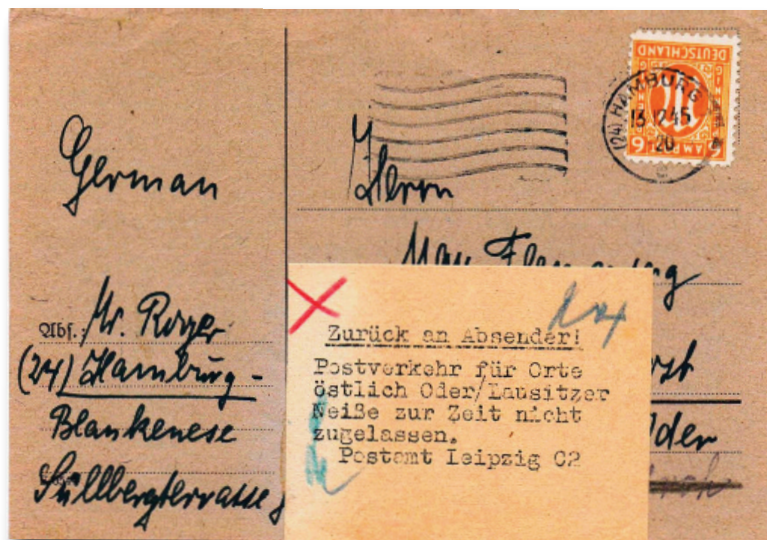 German
Abs.: Mr. Roger
(24) Hamburg-
Blankenese
Süllbergterrasse
DEUTSCHLAND
6 6
(24) HAMBURG
13.12.45
20
Herrn
Max
Zurück an Absender!
Postverkehr für Orte
östlich Oder/Lausitzer
Neiße zur Zeit nicht
zugelassen.
Postamt Leipzig C2
Oder